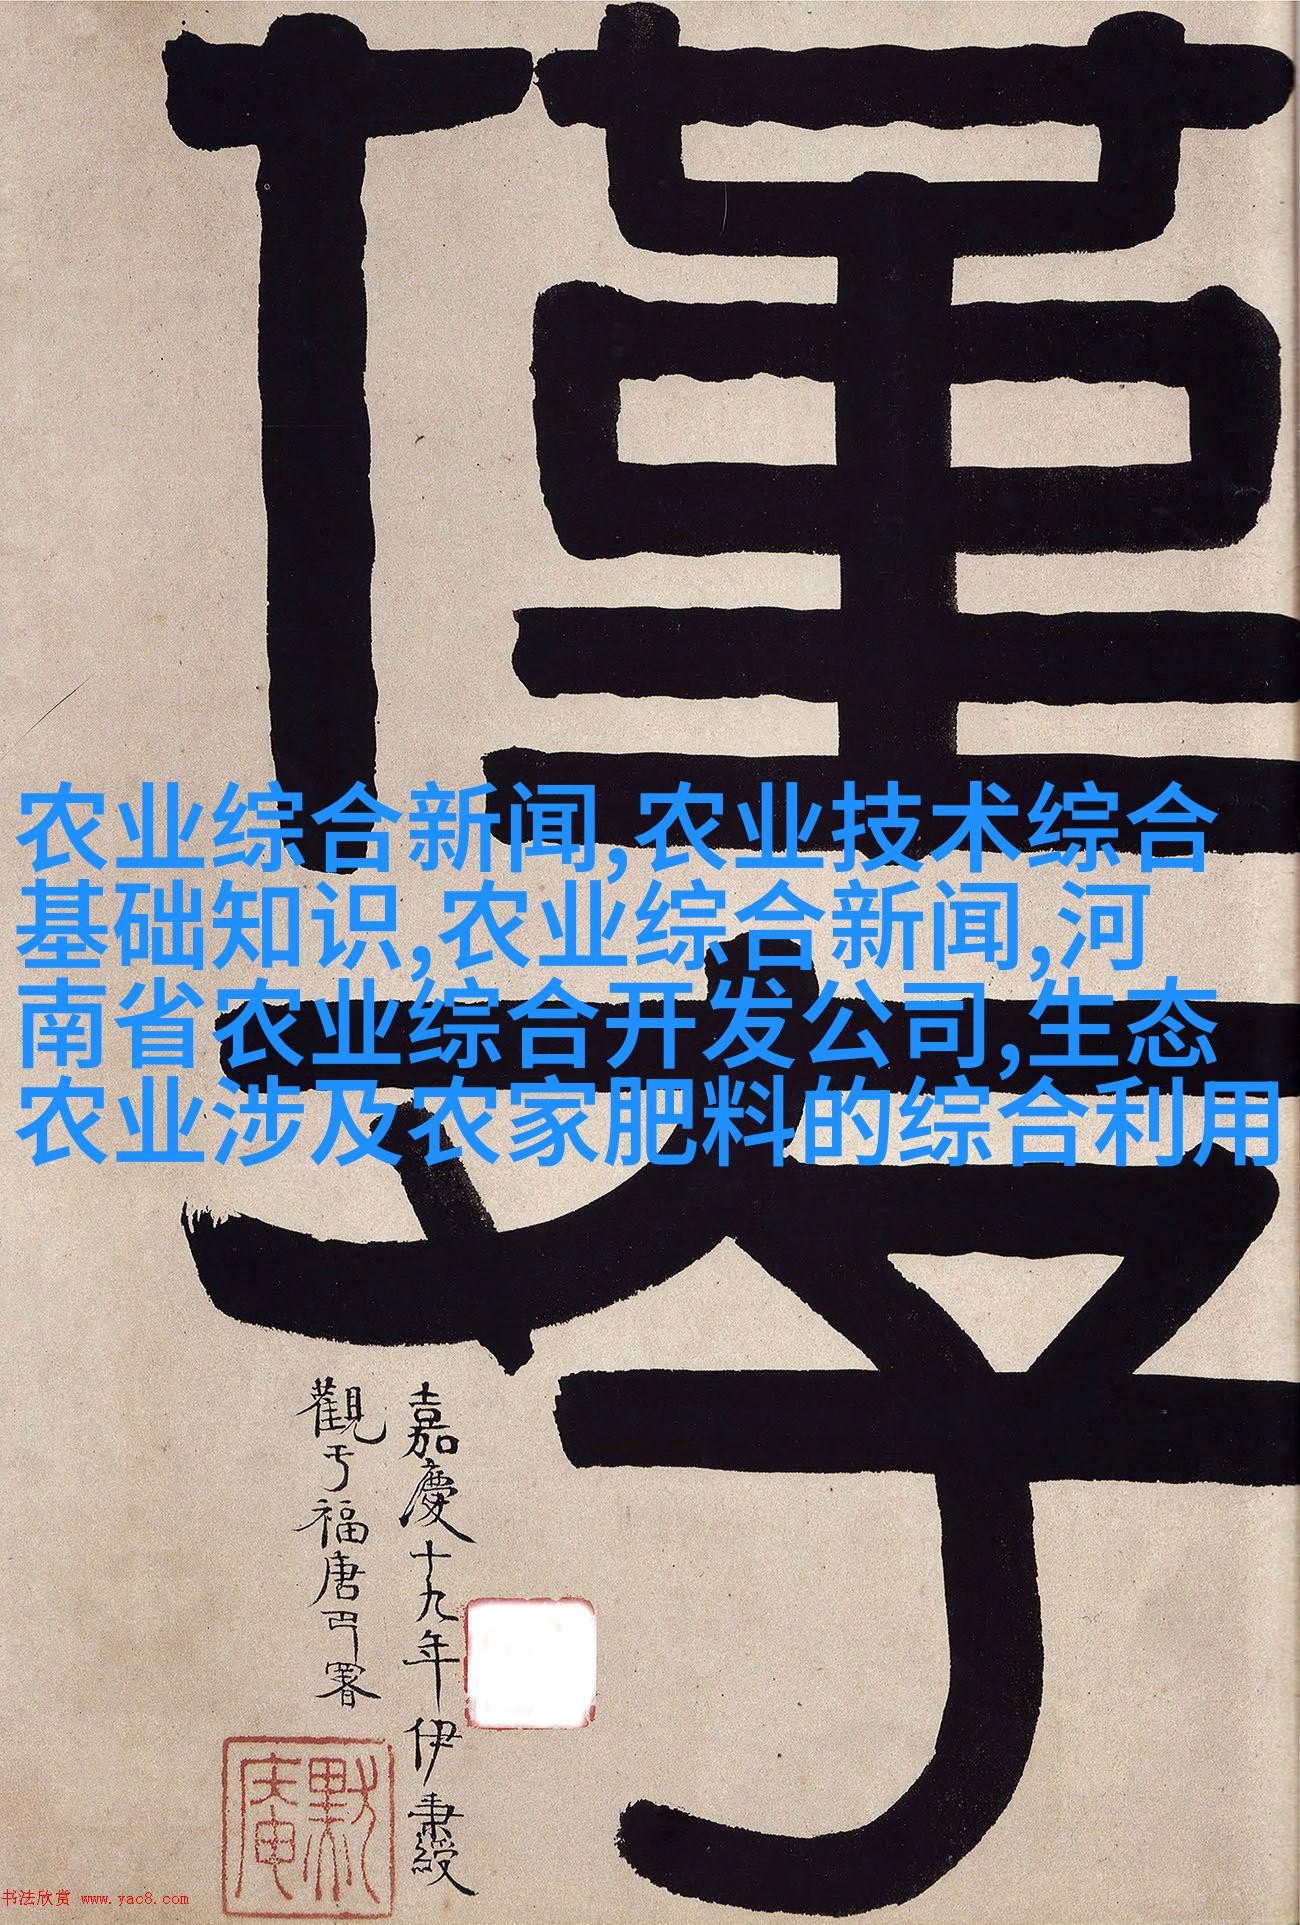 农业综合新闻,农业技术综合
基础知识,农业综合新闻,河
南省农业综合开发公司,生态
农业涉及农家肥料的综合利用
嘉慶十九年伊秉綬
觀于福唐
默庵
书法欣赏 www.yac8.com